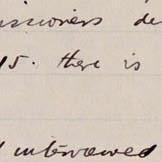 issioners de
15. there is
interviewed